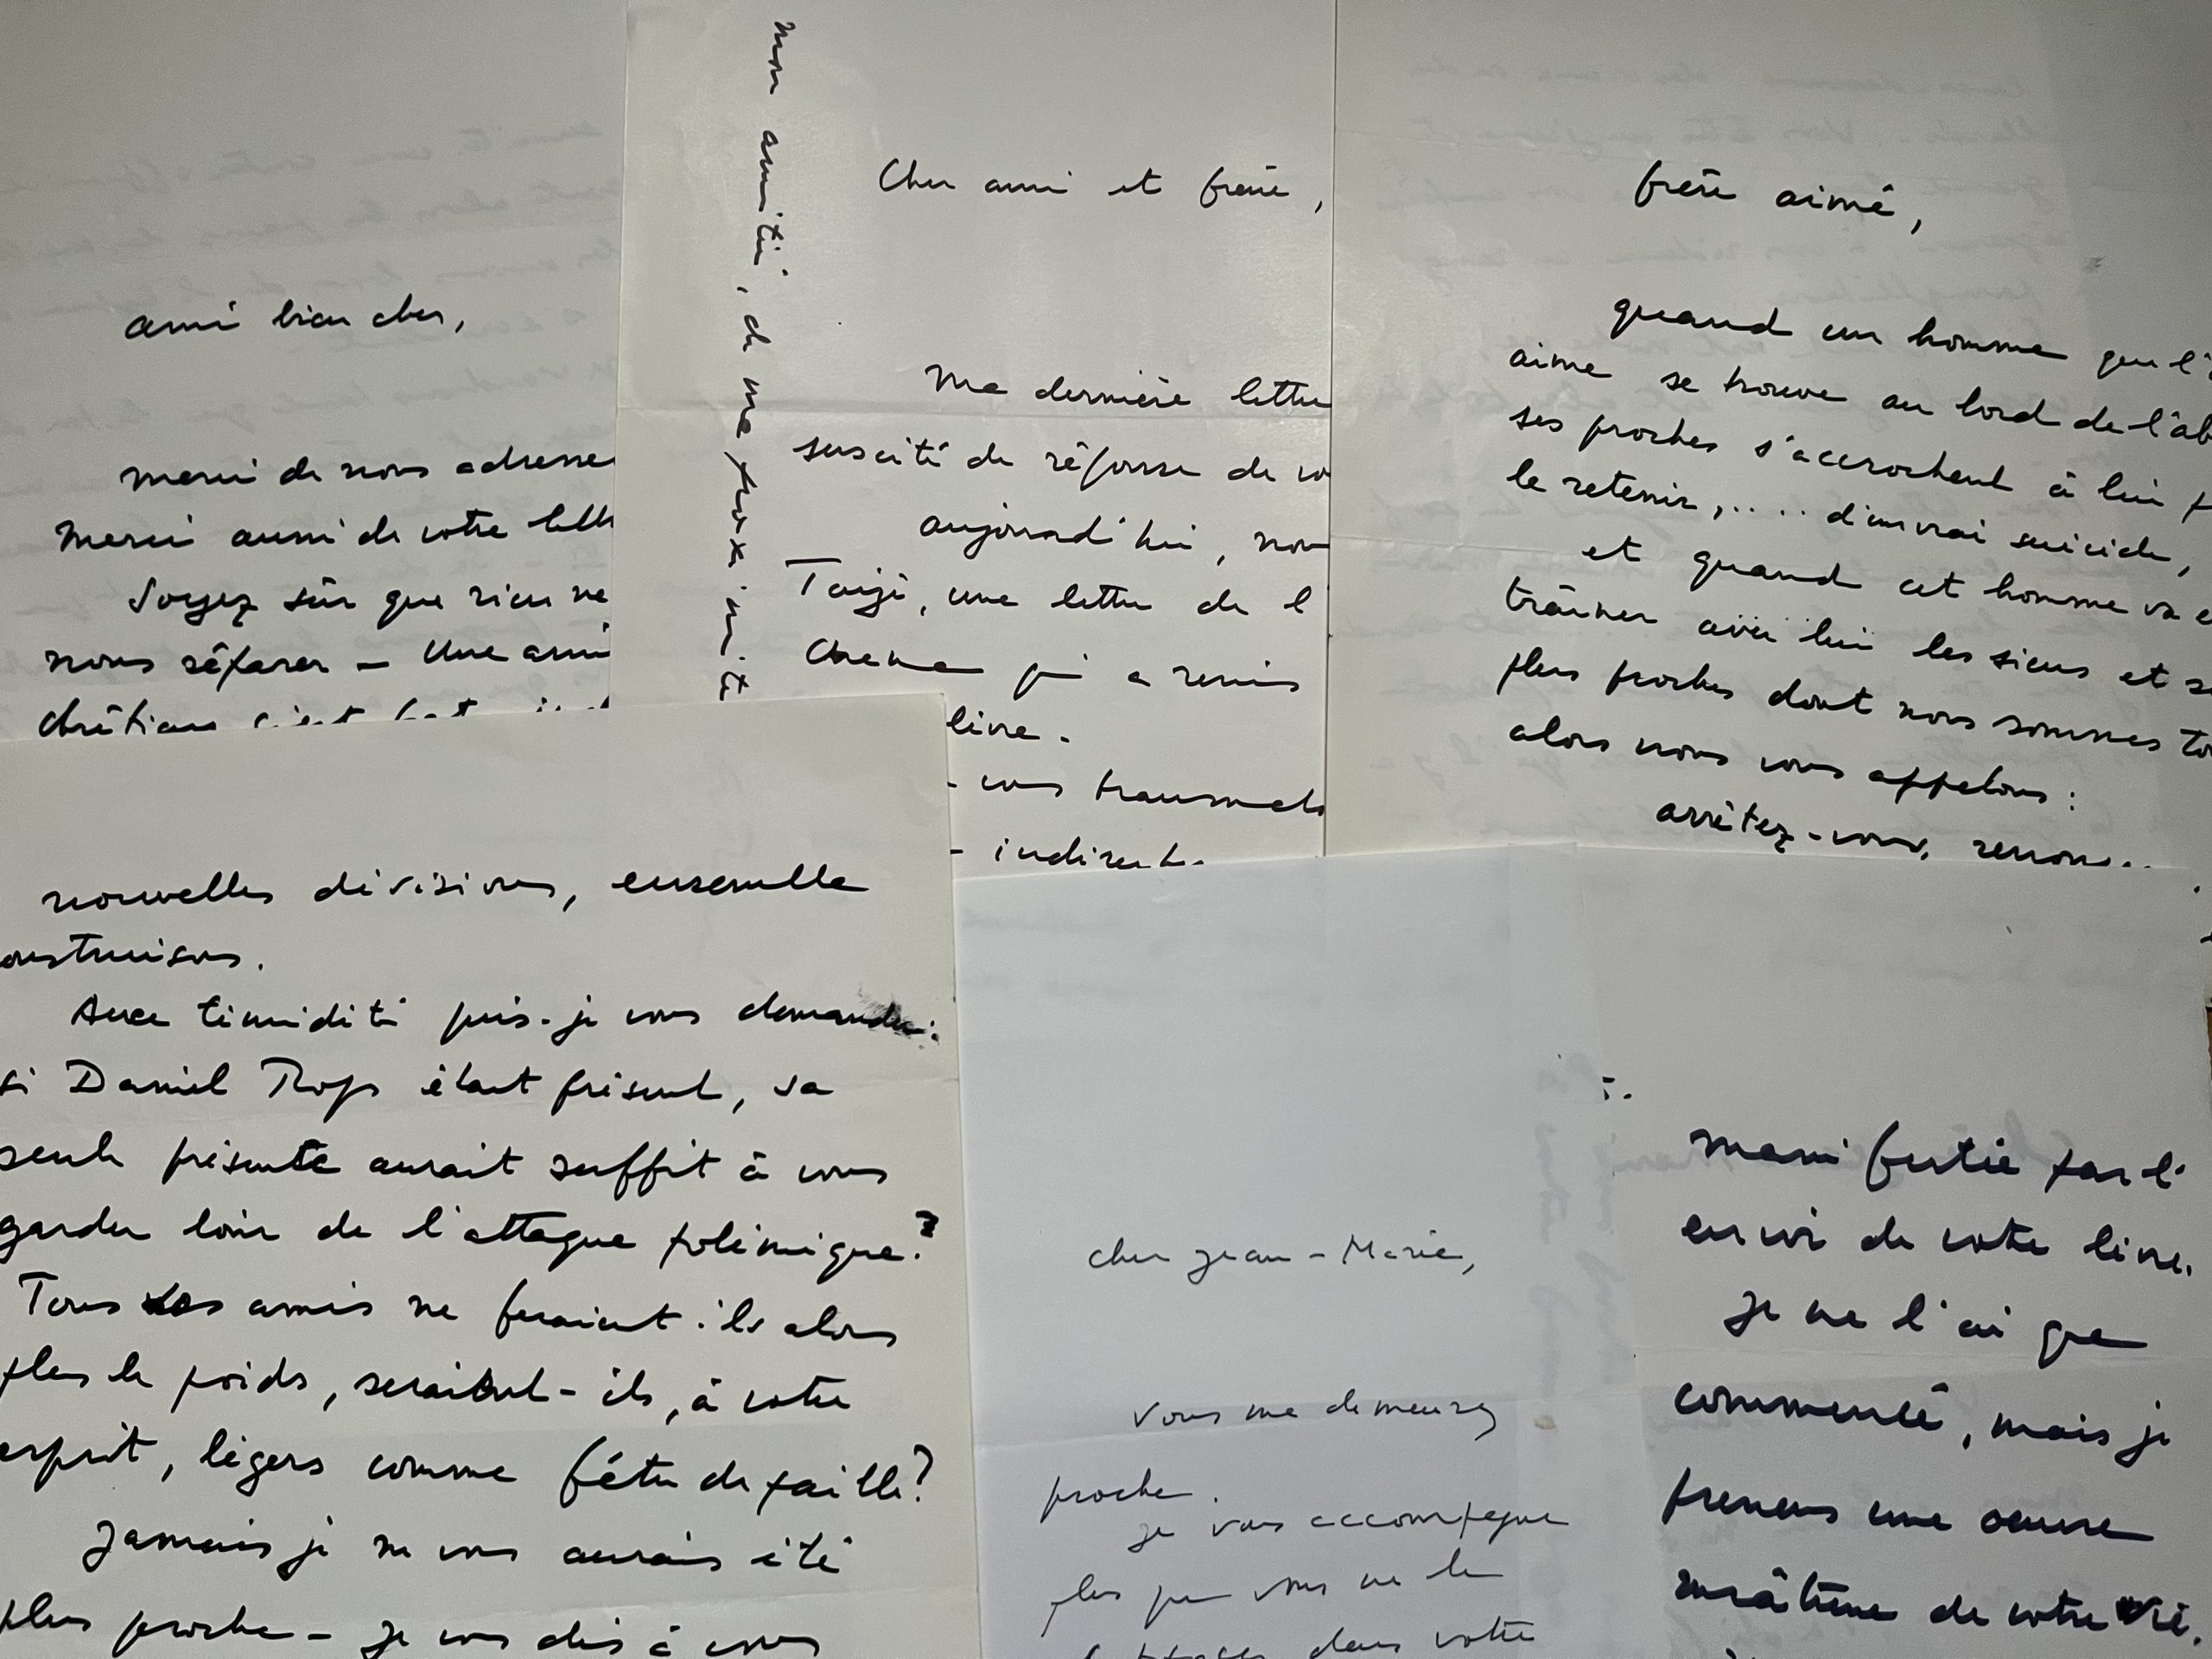 ami bien cher,
merci de nous adresser
merci aussi de votre lett
Soyez sûr que rien ne
nous séparer — Une ami
chrétiens c'est
mon amitié, de ma proximité
Cher ami et frère,
Ma dernière lettre
suscité de réponse de vo
aujourd'hui, nou
Taizé, une lettre de l
qui a remis
livre.
vous transmets
indirect
frère aimé,
quand un homme que l'
aime se trouve au bord de l'ab
ses proches s'accrochent à lui p
le retenir, .... d'un vrai suicide,
et quand cet homme va e
traîner avec lui les siens et s
plus proches dont nous sommes to
alors nous vous appelons :
arrêtez-vous, renon
nouvelles divisions, ensemble
onstruisons.
Avec timidité puis-je vous demander :
si Daniel Rops était présent, sa
seule présente aurait suffit à vous
garder loin de l'attaque polémique ?
Tous vos amis ne feraient-ils alors
plus le poids, seraient-ils, à votre
esprit, légers comme fétu de paille ?
Jamais je ne vous aurais été
plus proche — je vous dis à vous
cher Jean-Marie,
Vous me demeurez
proche.
je vous accompagne
plus que vous ne le
dans votre
manifestée par l'
envoi de votre livre.
Je ne l'ai que
commencé, mais je
pressens une oeuvre
maîtresse de votre vie.